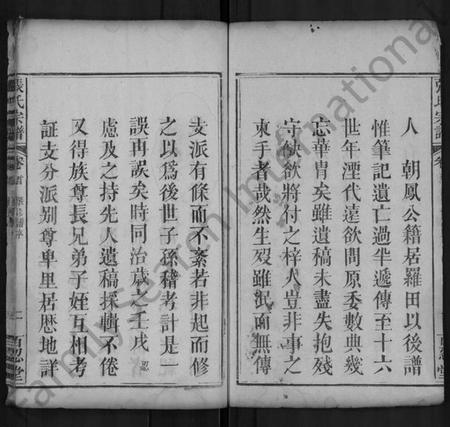 人　朝鳳公籍居羅田以後譜
惟筆記遺亡過半遞傳至十六
世年湮代遠欲問原委數典幾
忘華胄矣雖遺稿未盡失抱殘
守缺欲將付之梓人豈非事之
束手者哉然生歿雖泯而無傳
支派有條而不紊若非起而修
之以為後世子孫稽考計是一
誤再誤矣時同治歲在壬戌
慮及之持先人遺稿採輯不倦
又得族尊長兄弟子姪互相考
証支分派別尊卑里居歷地詳
張氏宗譜
卷首
二
百忍堂
FamilySearch International